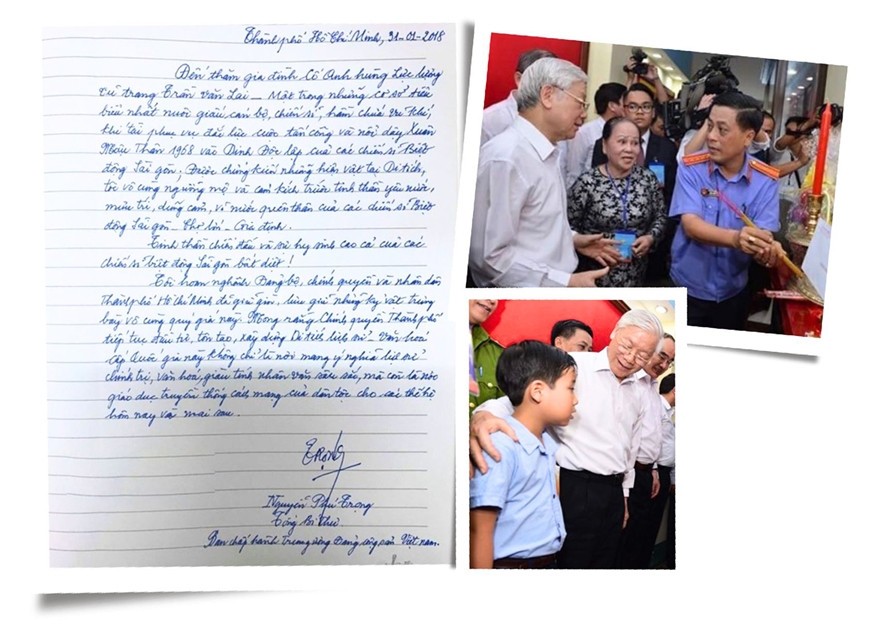 Thành phố Hồ Chí Minh, 31-01-2018
Đến thăm gia đình Cố Anh hùng Lực lượng
vũ trang Trần Văn Lai - Một trong những cơ sở tiêu
biểu nhất nuôi giấu cán bộ, chiến sĩ, hầm chứa vũ khí,
khí tài phục vụ đắc lực cuộc tấn công và nổi dậy Xuân
Mậu Thân 1968 vào Dinh Độc lập của các chiến sĩ Biệt
động Sài gòn; Được chứng kiến những hiện vật tại Di tích,
tôi vô cùng ngưỡng mộ và cảm kích trước tinh thần yêu nước,
mưu trí, dũng cảm, vì nước quên thân của các chiến sĩ Biệt
động Sài gòn - Chợ lớn - Gia định.
Tinh thần chiến đấu và sự hy sinh cao cả của các
chiến sĩ biệt động Sài gòn bất diệt!
Tôi hoan nghênh Đảng bộ, chính quyền và nhân dân
Thành phố Hồ Chí Minh đã giữ gìn, lưu giữ những kỷ vật trưng
bày vô cùng quý giá này. Mong rằng Chính quyền Thành phố
tiếp tục đầu tư, tôn tạo, xây dựng Di tích lịch sử - Văn hoá
cấp Quốc gia này không chỉ là nơi mang ý nghĩa lịch sử
chính trị, văn hoá, giàu tính nhân văn sâu sắc, mà còn là nơi
giáo dục truyền thống cách mạng của dân tộc cho các thế hệ
hôm nay và mai sau.
TRỌNG
Nguyễn Phú Trọng
Tổng Bí Thư
Ban chấp hành Trung ương Đảng cộng sản Việt nam.